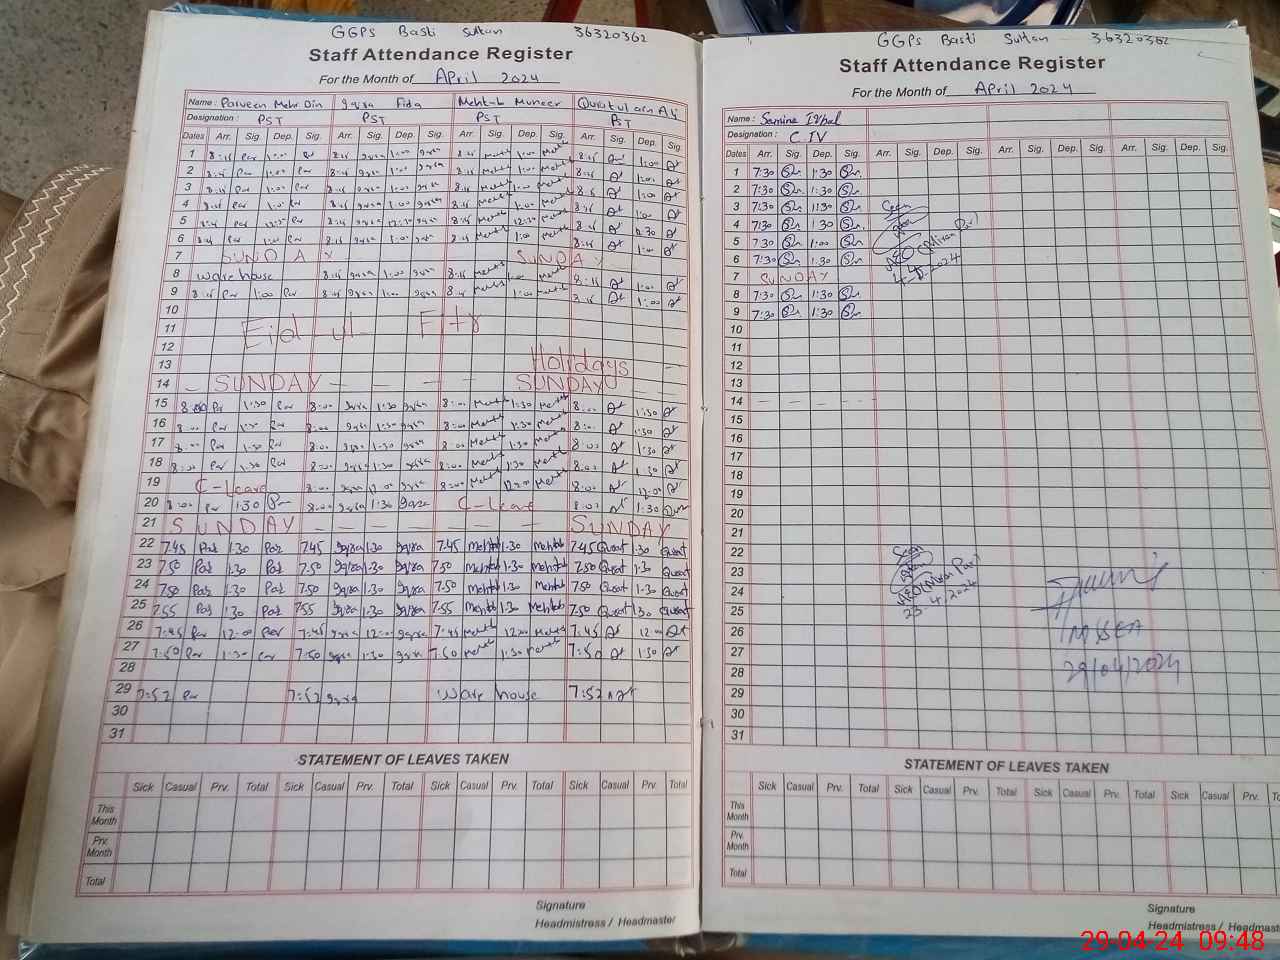 GGPS Basti Sultan 36320362
Staff Attendance Register
For the Month of April 2024
Name : Parveen Mehr Din Iqra Fida Mehtab Muneer Quratulain Ali
Designation : PST PST PST PST
Dates Arr. Sig. Dep. Sig. Arr. Sig. Dep. Sig. Arr. Sig. Dep. Sig. Arr. Sig. Dep. Sig.
1 8:15 Par 1:00 Par 8:15 Iqra 1:00 Iqra 8:15 Mehtab 1:00 Mehtab 8:15 1:00
2 8:15 Par 1:00 Par 8:15 Iqra 1:00 Iqra 8:15 Mehtab 1:00 Mehtab 8:15 1:00
3 8:15 Par 1:00 Par 8:15 Iqra 1:00 Iqra 8:15 Mehtab 1:00 Mehtab 8:15 1:00
4 8:15 Par 1:00 Par 8:15 Iqra 1:00 Iqra 8:15 Mehtab 1:00 Mehtab 8:15 1:00
5 8:15 Par 12:30 Par 8:15 Iqra 12:30 Iqra 8:15 Mehtab 12:30 Mehtab 8:15 12:30
6 8:15 Par 1:00 Par 8:15 Iqra 1:00 Iqra 8:15 Mehtab 1:00 Mehtab 8:15 1:00
7 SUNDAY SUNDAY
8 Ware house 8:15 Iqra 1:00 Iqra 8:15 Mehtab 1:00 Mehtab 8:15 1:00
9 8:15 Par 1:00 Par 8:15 Iqra 1:00 Iqra 8:15 Mehtab 1:00 Mehtab 8:15 1:00
10
11 Eid-ul-Fitr
12
13 Holidays
14 SUNDAY SUNDAY
15 8:00 Par 1:30 Par 8:00 Iqra 1:30 Iqra 8:00 Mehtab 1:30 Mehtab 8:00 1:30
16 8:00 Par 1:30 Par 8:00 Iqra 1:30 Iqra 8:00 Mehtab 1:30 Mehtab 8:00 1:30
17 8:00 Par 1:30 Par 8:00 Iqra 1:30 Iqra 8:00 Mehtab 1:30 Mehtab 8:00 1:30
18 8:00 Par 1:30 Par 8:00 Iqra 1:30 Iqra 8:00 Mehtab 1:30 Mehtab 8:00 1:30
19 C-Leave 8:00 Iqra 12:00 Iqra 8:00 Mehtab 12:00 Mehtab 8:00 12:00
20 8:00 Par 1:30 Par 8:00 Iqra 1:30 Iqra C-Leave 8:00 1:30
21 SUNDAY SUNDAY
22 7:45 Par 1:30 Par 7:45 Iqra 1:30 Iqra 7:45 Mehtab 1:30 Mehtab 7:45 Qurat 1:30 Qurat
23 7:50 Par 1:30 Par 7:50 Iqra 1:30 Iqra 7:50 Mehtab 1:30 Mehtab 7:50 Qurat 1:30 Qurat
24 7:50 Par 1:30 Par 7:50 Iqra 1:30 Iqra 7:50 Mehtab 1:30 Mehtab 7:50 Qurat 1:30 Qurat
25 7:55 Par 1:30 Par 7:55 Iqra 1:30 Iqra 7:55 Mehtab 1:30 Mehtab 7:50 Qurat 1:30 Qurat
26 7:45 Par 12:00 Par 7:45 Iqra 12:00 Iqra 7:45 Mehtab 12:00 Mehtab 7:45 12:00
27 7:50 Par 1:30 Par 7:50 Iqra 1:30 Iqra 7:50 Mehtab 1:30 Mehtab 7:50 1:30
28
29 7:52 Par 7:52 Iqra Ware house 7:52
30
31
STATEMENT OF LEAVES TAKEN
Sick Casual Prv. Total Sick Casual Prv. Total Sick Casual Prv. Total Sick Casual Prv. Total
This Month
Prv. Month
Total
Signature
Headmistress / Headmaster
GGPS Basti Sultan 36320362
Staff Attendance Register
For the Month of April 2024
Name : Samina Iqbal
Designation : C.IV
Dates Arr. Sig. Dep. Sig. Arr. Sig. Dep. Sig. Arr. Sig. Dep. Sig. Arr. Sig.
1 7:30 1:30
2 7:30 1:30
3 7:30 1:30 Seen
4 7:30 1:30
5 7:30 1:00 AEO (Miran Pur)
6 7:30 1:30 4-4-2024
7 SUNDAY
8 7:30 1:30
9 7:30 1:30
10
11
12
13
14
15
16
17
18
19
20
21
22 Seen
23
24 AEO (Miran Pur)
25 23-4-2024
26 MSSEA
27
28 29/04/2024
29
30
31
STATEMENT OF LEAVES TAKEN
Sick Casual Prv. Total Sick Casual Prv. Total Sick Casual Prv. Total Sick Casual Prv.
This Month
Prv. Month
Total
Signature
Headmistress / Headmaster
29-04-24 09:48